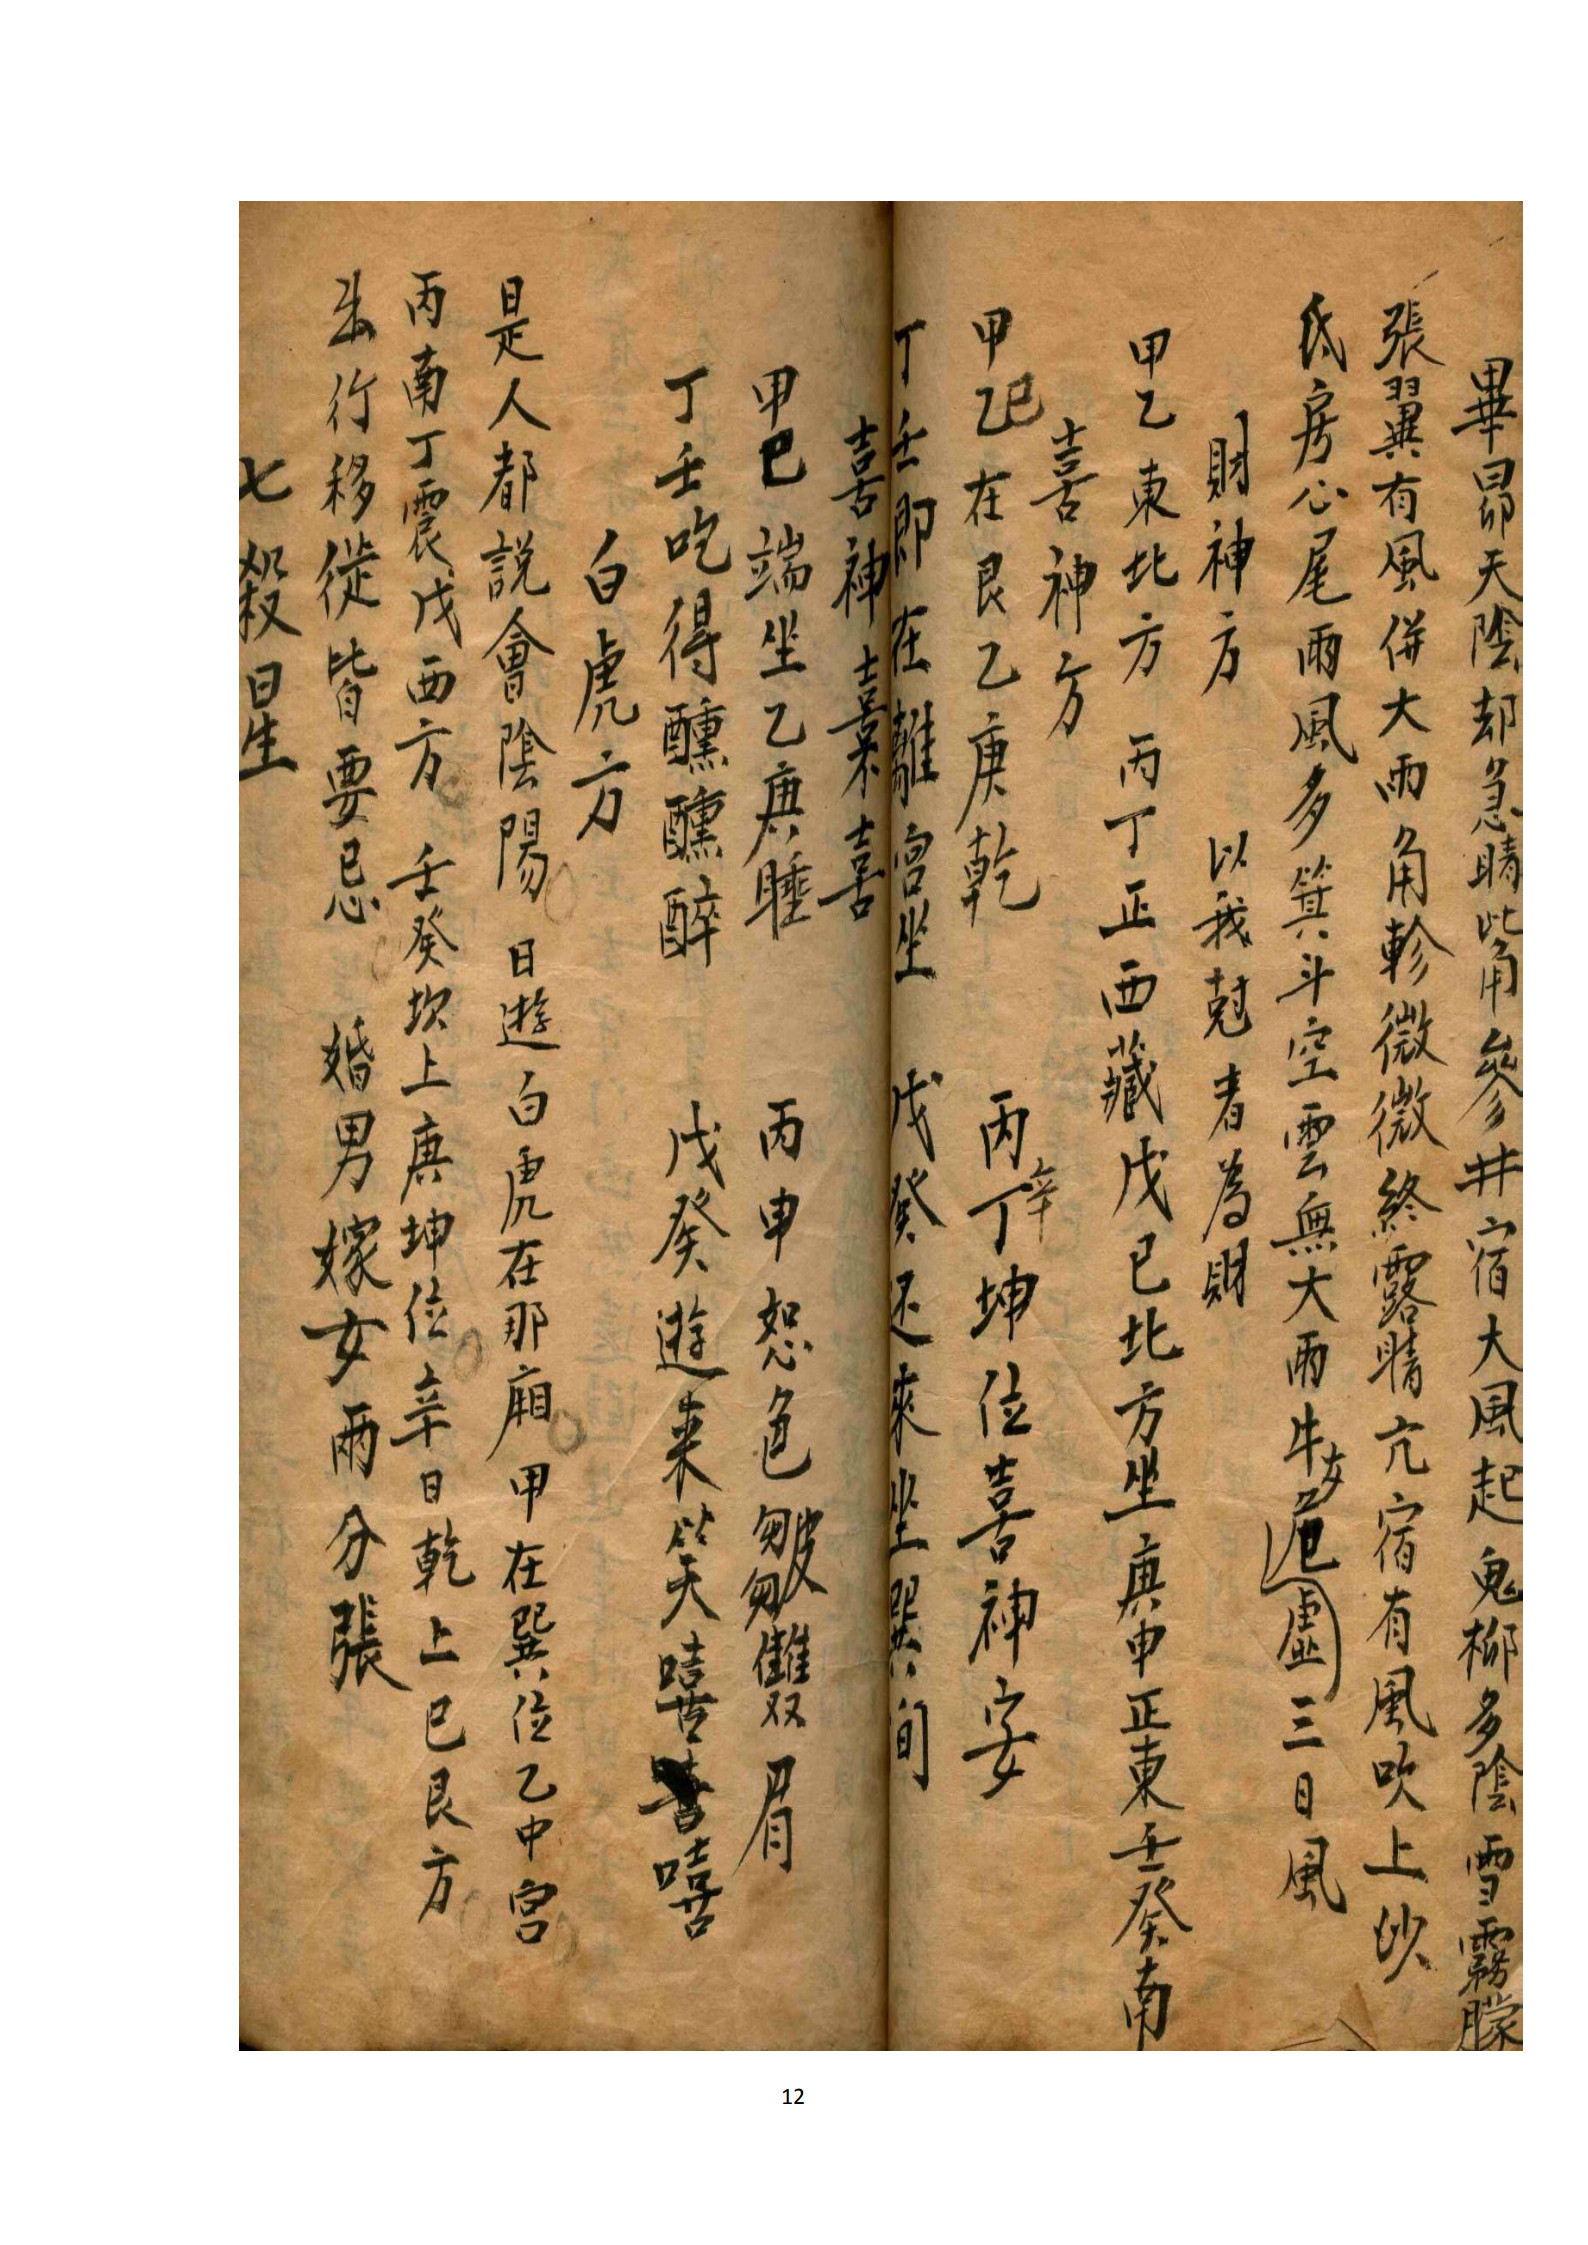 畢昴天陰却急晴觜角參井宿大風起鬼柳多陰雪霧朦
張翼有風併大雨角軫微微終露晴亢宿有風吹上沙
氐房心尾雨風多箕斗空雲無大雨牛女危虛三日風
財神方 以我尅者為財
甲乙東北方 丙丁正西藏戊己北方坐庚申正東壬癸南
喜神方
甲乙己在艮乙庚乾 丙丁辛坤位喜神安
丁壬即在離宮坐 戊癸还來坐巽间
喜神喜
甲巳端坐乙庚睡 丙申恕色皺雙眉
丁壬吃得醺醺醉 戊癸遊来笑嘻嘻
白虎方
是人都説會陰陽 日遊白虎在那廂甲在巽位乙中宮
丙南丁震戊西方 壬癸坎上庚坤位辛日乾上巳艮方
出行移徙皆要忌 婚男嫁女兩分張
七殺日星